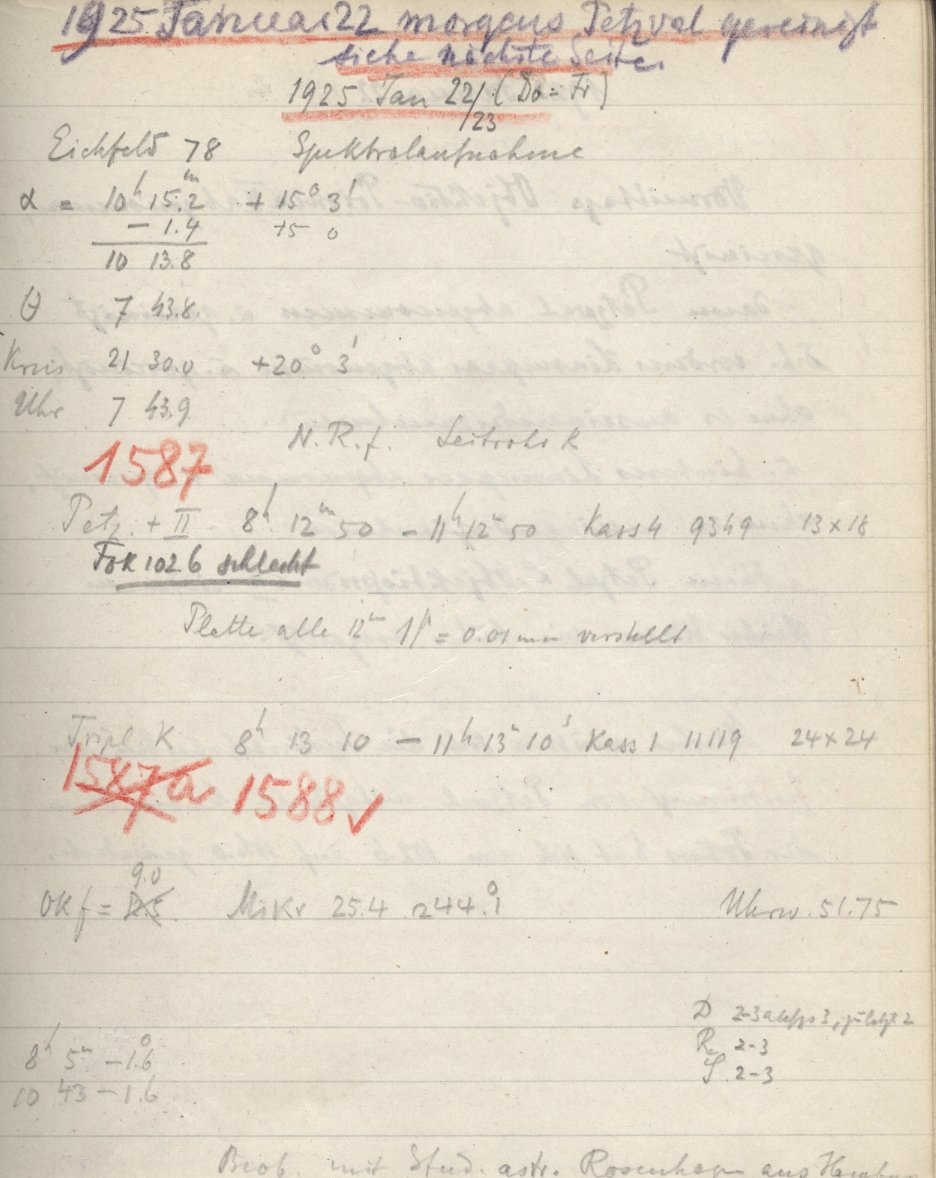 1925 Januar 22 morgens Petzval gereinigt
siehe nächste Seite.
1925 Jan 22/23 (Do = Fr)
Eichfeld 78 Spektralaufnahme
α = 10h 15.m2 + 15° 3'
- 1.4 +5 0
10 13.8
θ 7 43.8
Kreis 21 30.0 +20° 3'
Uhr 7 43.9
N.R.f. Leitrohr R
1587
Petz. + II 8h 12m 50 - 11h 12m 50 Kass 4 9349 13 x 18
Fok 102.6 schlecht
Platte alle 12m = 0.01 mm verstellt
Tripl. K 8h 13 10 - 11h 13m 10s Kass 1 11119 24 x 24
1587a 1588 ✓
9.0
OK f = Mikr 25.4 244.°1 Uhrw. 51.75
D 2-3 3, zuletzt 2
R 2-3
S 2-3
8h 5m -1.°6
10 43 -1.6
Beob. mit Stud. astr. Rosenhagen aus Hamburg